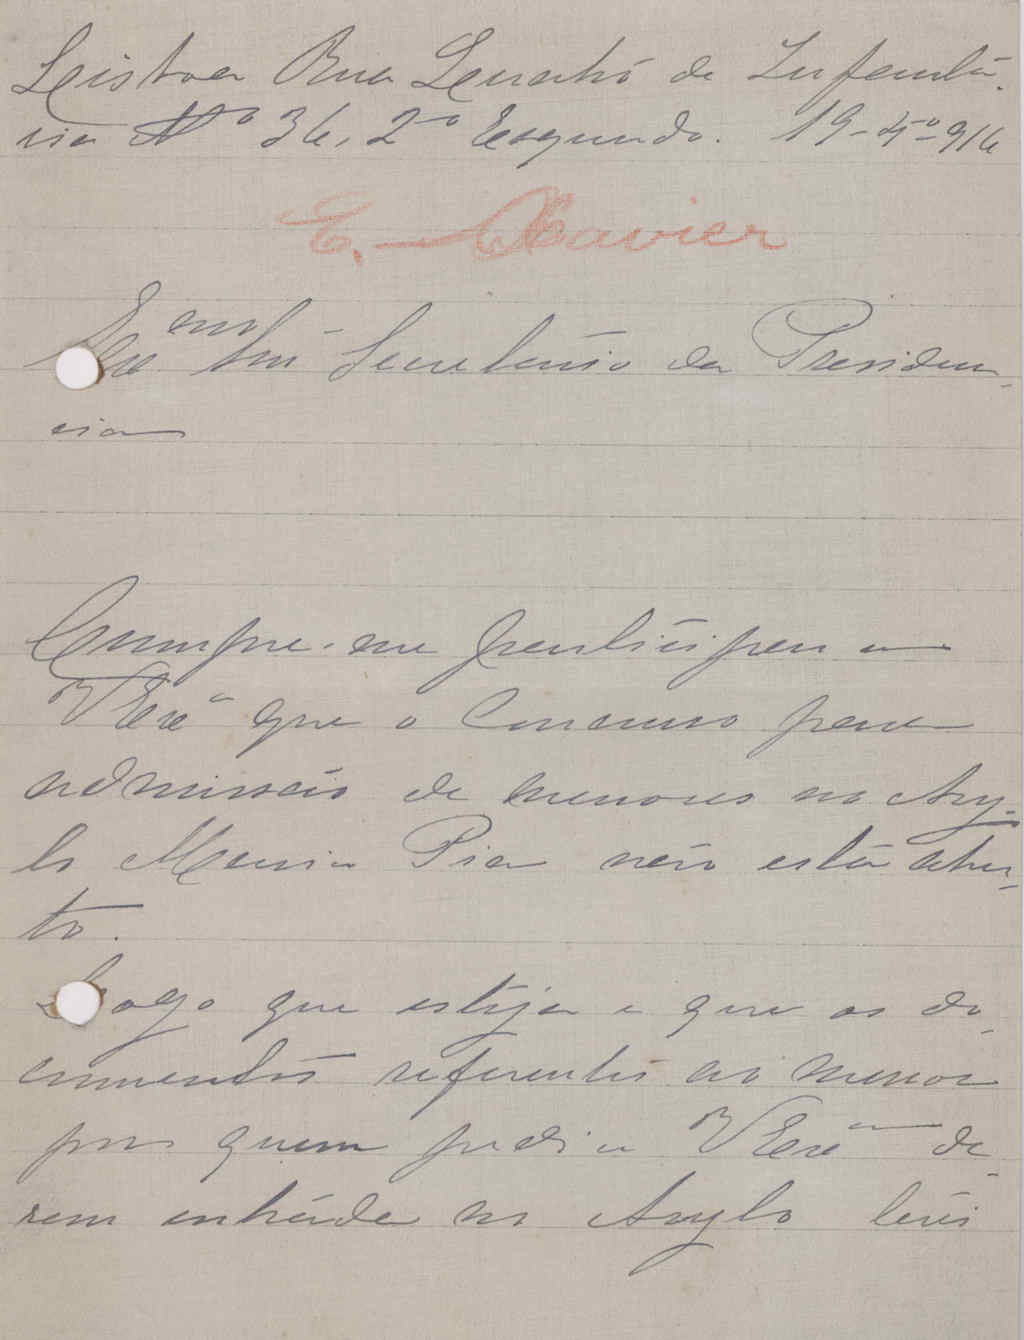 Lisboa Rua Quatro de Infanta-
ria Nº 36, 2º Esquerdo. 19-4º-916
E. Xavier
Exmo Snr Secretario da Presiden-
cia
Cumpre-me participar a
VExª que o Concurso para
admissão de menores no Asy-
lo Maria Pia não está aber-
to.
Logo que esteja e que os do-
cumentos referentes ao menor
por quem pedi a VExª de-
rem entrada no Asylo terei